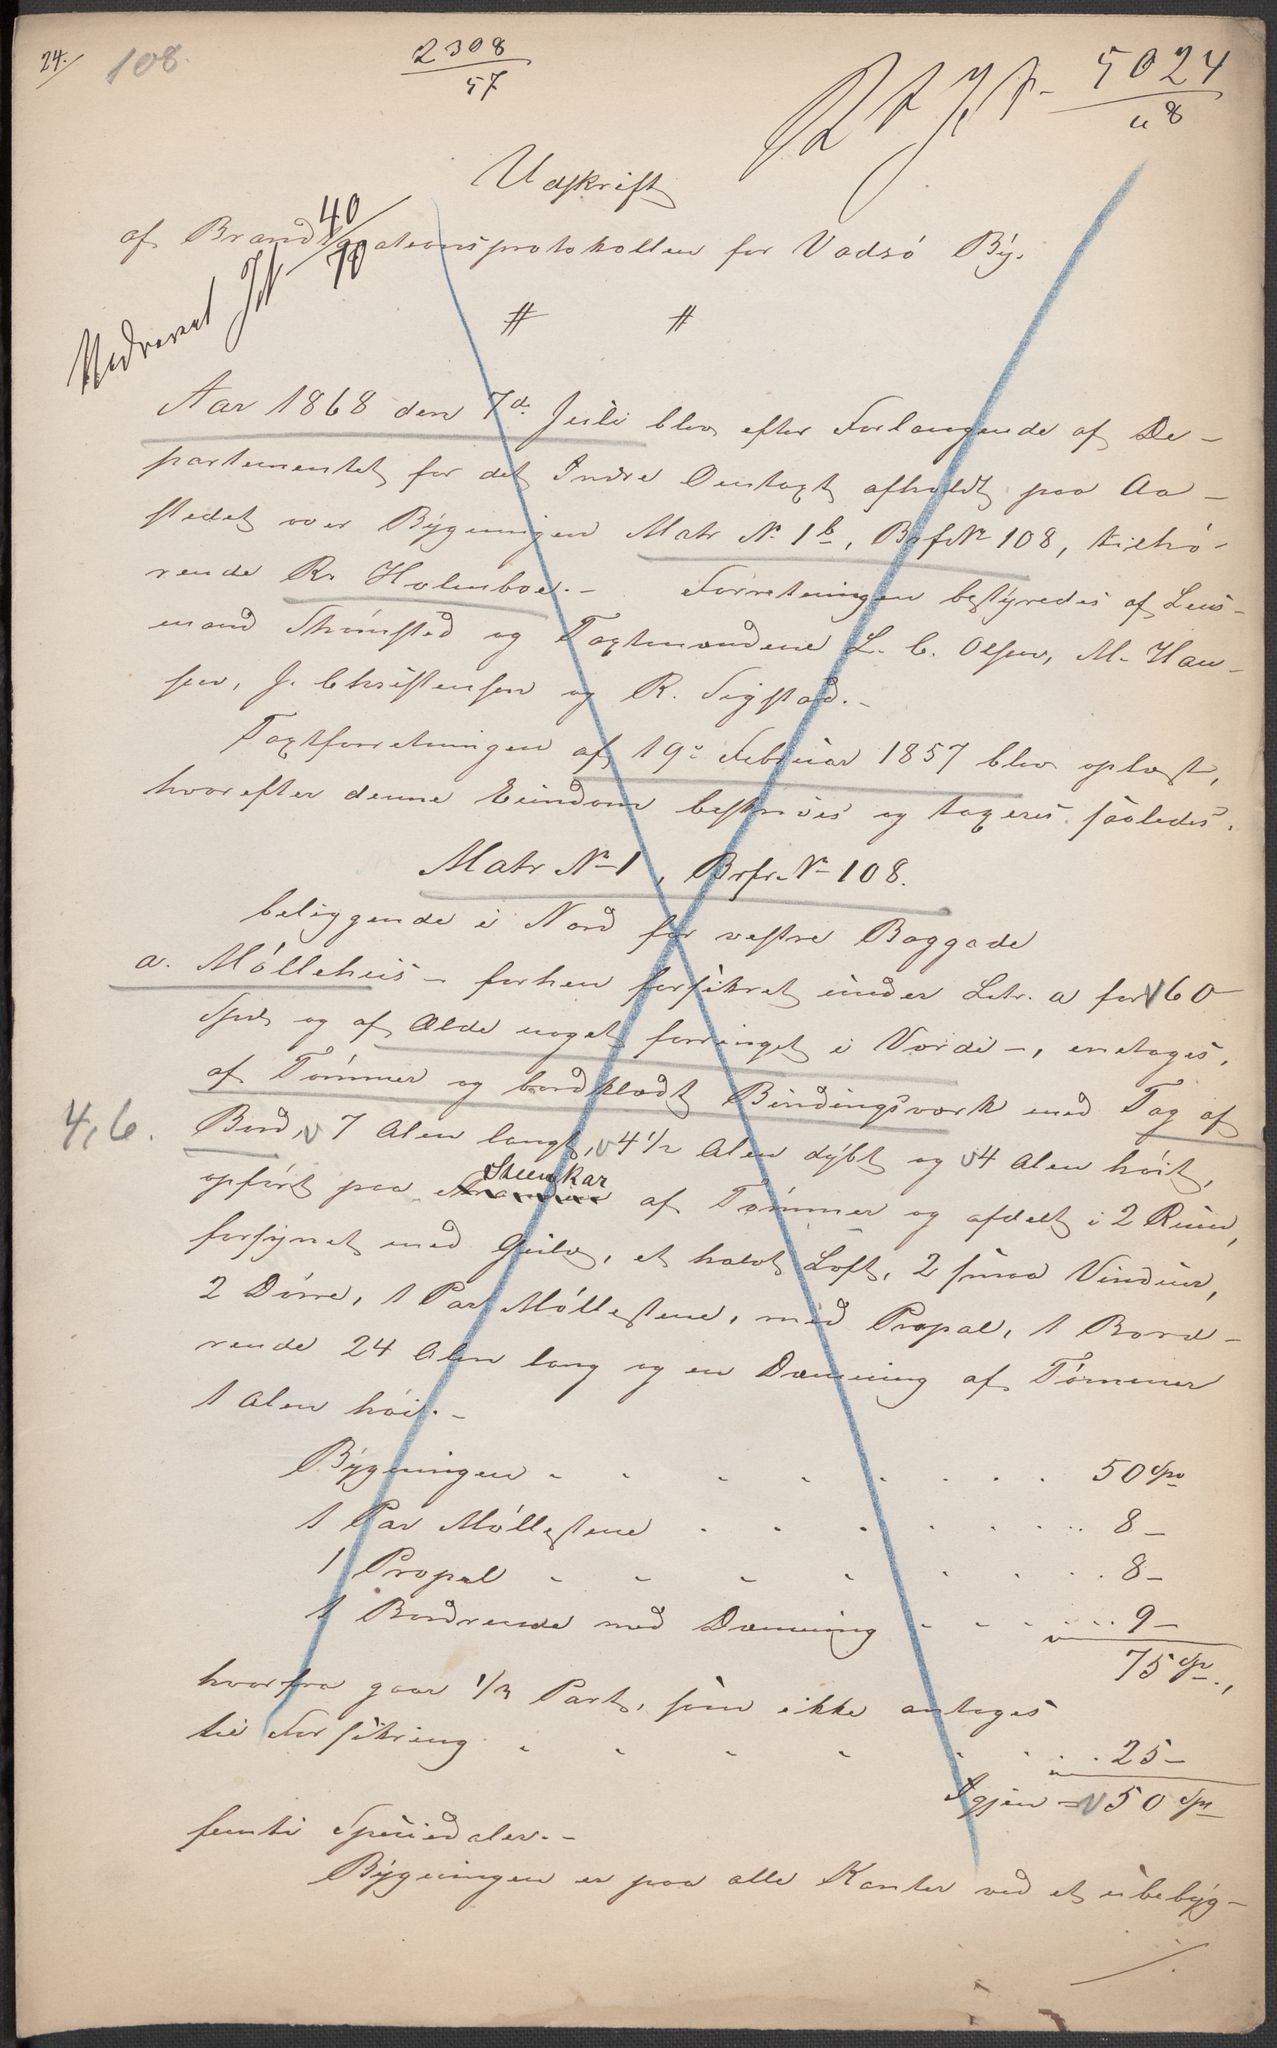 24./ 108. 2308/57 5024/u8
Udskrift
af Brandtaxationsprotokollen for Vadsö By.
40/70
# #
Aar 1868 den 7de Juli blev efter Forlangende af De-
partementet for det Indre Omtaxt afholdt paa Aa-
stedet over Bygningen Matr No 1b, Brf No 108, tilhö-
rende R. Holmboe. – Forretningen bestyredes af Lens-
mand Strömsted og Taxtmændene L. C. Olsen, M. Han-
sen, J. Christensen og R. Sigstad. –
Taxtforretningen af 19de Februar 1857 blev oplæst,
hvorefter denne Eiendom beskrives og taxeres saaledes.
Matr No 1, Brfr. No 108.
beliggende i Nord for vestre Baggade
a. Möllehuus – forhen forsikret under Litr. a for 60
Spd og af Ælde noget forringet i Værdi –, enetages,
af Tömmer og bordklædt Bindingsværk med Tag af
4,6.
Bord, 7 Alen langt, 4 1/2 Alen dybt og 4 Alen höit,
Steenkar
opfört paa af Tömmer og afdelt i 2 Rum,
forsynet med Gulv, et halvt Loft, 2 smaa Vinduer,
2 Dörre, 1 Par Möllestene, med Propal, 1 Bord-
rende 24 Alen lang og en Dæmning af Tömmer
1 Alen höi. –
Bygningen . . . . . . . . 50 Spd
1 Par Möllestene . . . . . . . . 8 –
1 Propal . . . . . . . . 8 –
1 Bordrende med Dæmning . . . . . . 9 –
75 Spd.,
hvorfra gaar 1/3 Part, som ikke antages
til Forsikring . . . . . . . . 25 –
Igjen = 50 Spd
femti Speciedaler. –
Bygningen er paa alle Kanter ved et ubebyg-
/.